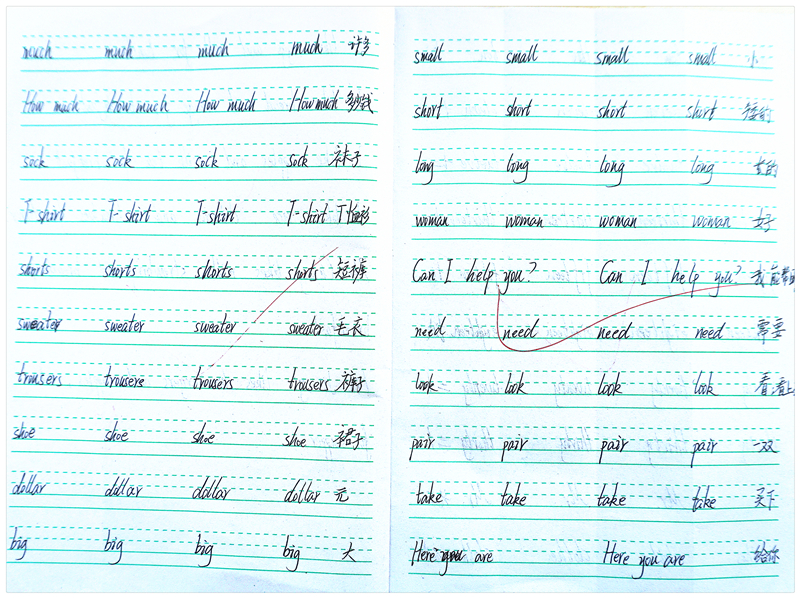 much much much much 许多
How much How much How much How much 多少钱
sock sock sock sock 袜子
T-shirt T-shirt T-shirt T-shirt T恤衫
shorts shorts shorts shorts 短裤
sweater sweater sweater sweater 毛衣
trousers trousere trousers trousers 裤子
shoe shoe shoe shoe 裙子
dollar dollar dollar dollar 元
big big big big 大
small small small small 小
short short short short 矮的
long long long long 长的
woman woman woman woman 女子
Can I help you? Can I help you? 我能帮
need need need need 需要
look look look look 看,看上
pair pair pair pair 一双
take take take take 买下
Here you are Here you are 给你